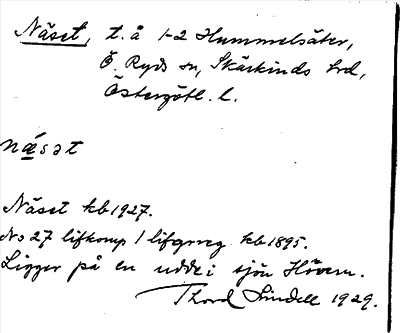 Näset, t. å 1-2 Hummelsäter,
Ö. Ryds sn, Skärkinds hrd,
Östergötl. l.
næsət
Näset kb 1927.
No 27 lifkomp 1 lifgrreg kb 1895.
Ligger på en udde i sjön Hövern.
Thord Lindell 1929.